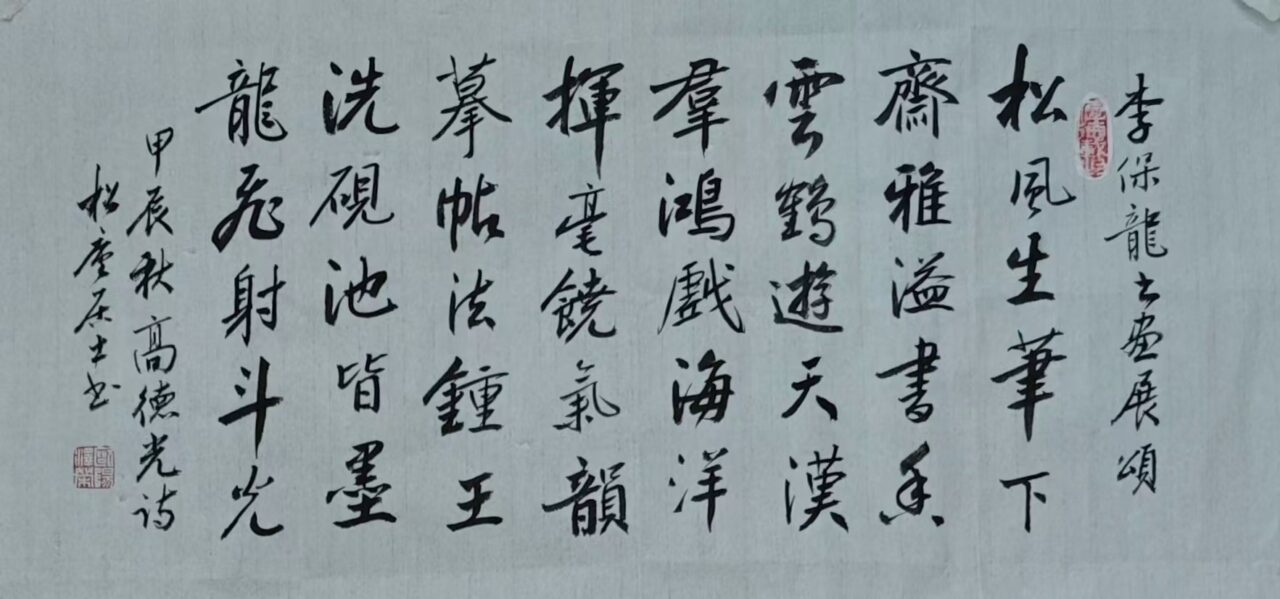 李保龍书画展頌
松風生筆下
齋雅溢書香
雲鶴遊天漢
羣鴻戲海洋
揮毫饒氣韻
摹帖法鍾王
洗硯池皆墨
龍飛射斗光
甲辰秋高德光诗
松廬居士书